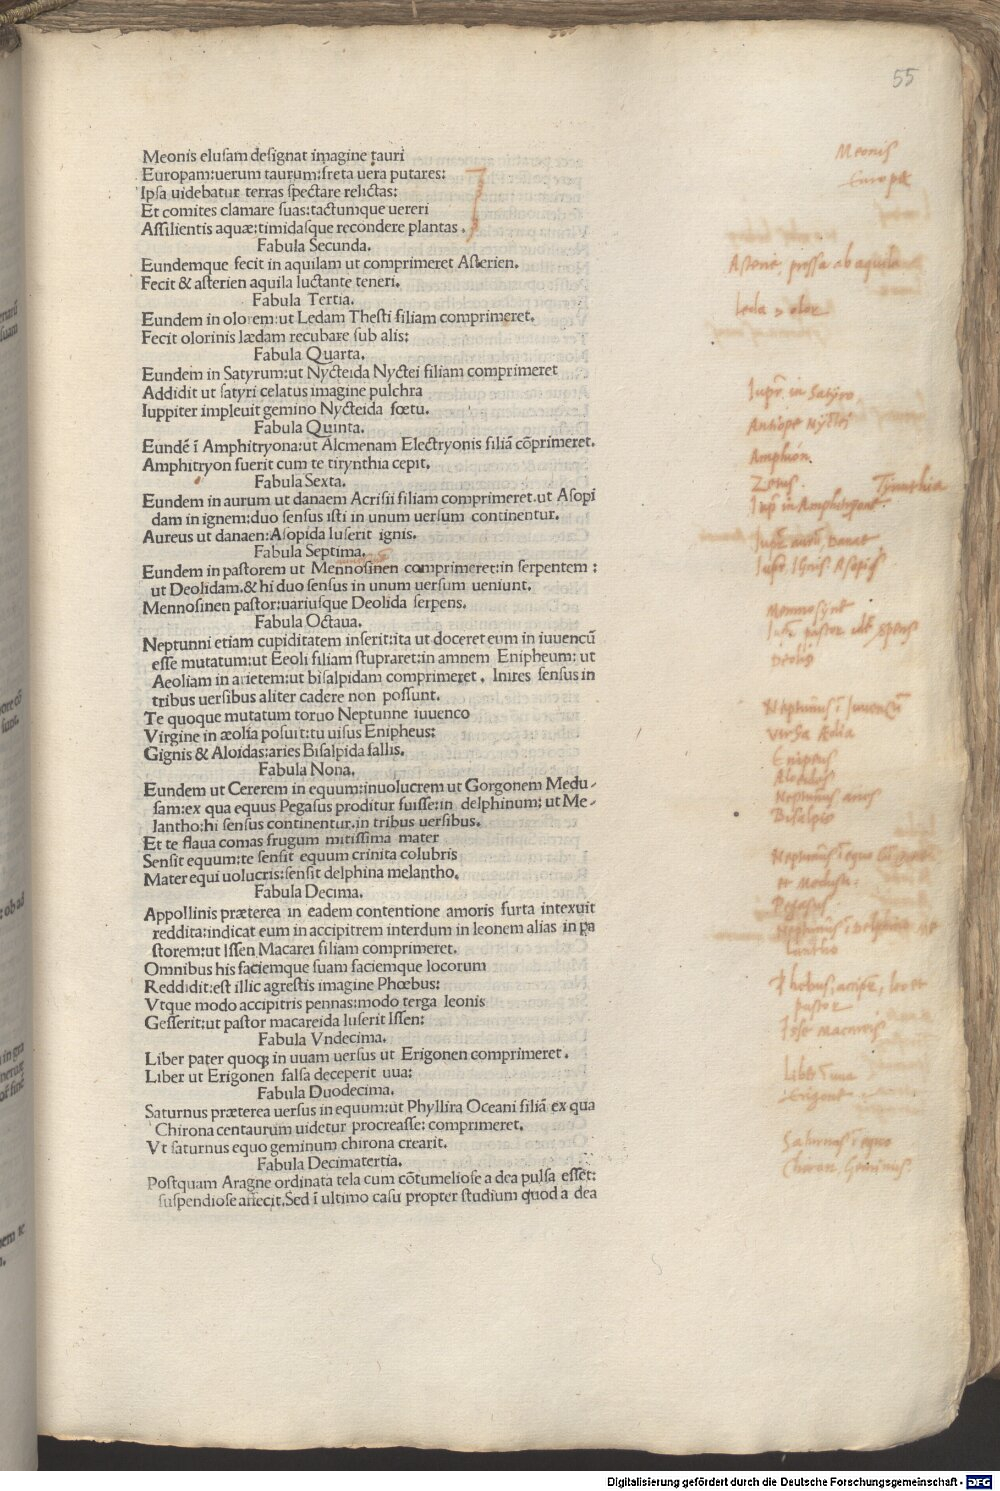 55
Meonis elusam designat imagine tauri
Europam:uerum taurum:freta uera putares:
Ipsa uidebatur terras spectare relictas:
Et comites clamare suas:tactumque uereri
Assilientis aquæ:timidasque recondere plantas.
Fabula Secunda.
Eundemque fecit in aquilam ut comprimeret Asterien.
Fecit & asterien aquila luctante teneri.
Fabula Tertia.
Eundem in olorem:ut Ledam Thesti filiam comprimeret.
Fecit olorinis lædam recubare sub alis:
Fabula Quarta.
Eundem in Satyrum:ut Nycteida Nyctei filiam comprimeret
Addidit ut satyri celatus imagine pulchra
Iuppiter impleuit gemino Nycteida fœtu.
Fabula Quinta.
Eundē ī Amphitryona:ut Alcmenam Electryonis filiā cōprimeret.
Amphitryon fuerit cum te tirynthia cepit.
Fabula Sexta.
Eundem in aurum ut danaem Acrisii filiam comprimeret.ut Asopi
dam in ignem:duo sensus isti in unum uersum continentur.
Aureus ut danaen:Asopida luserit ignis.
Fabula Septima.
Eundem in pastorem ut Mennosinen comprimeret:in serpentem :
ut Deolidam.& hi duo sensus in unum uersum ueniunt.
Mennosinen pastor:uariusque Deolida serpens.
Fabula Octaua.
Neptunni etiam cupiditatem inserit:ita ut doceret eum in iuuencū
esse mutatum:ut Eeoli filiam stupraret:in amnem Enipheum: ut
Aeoliam in arietem:ut bisalpidam comprimeret. Inires sensus in
tribus uersibus aliter cadere non possunt.
Te quoque mutatum toruo Neptunne iuuenco
Virgine in æolia posuit:tu uisus Enipheus:
Gignis & Aloidas:aries Bisalpida fallis.
Fabula Nona.
Eundem ut Cererem in equum:inuolucrem ut Gorgonem Medu-
sam:ex qua equus Pegasus proditur fuisse:in delphinum: ut Me-
lantho:hi sensus continentur.in tribus uersibus.
Et te flaua comas frugum mitissima mater
Sensit equum:te sensit equum crinita colubris
Mater equi uolucris:sensit delphina melantho.
Fabula Decima.
Appollinis præterea in eadem contentione amoris furta intexuit
reddita:indicat eum in accipitrem interdum in leonem alias in pa
storem:ut Issen Macarei filiam comprimeret.
Omnibus his faciemque suam faciemque locorum
Reddidit:est illic agrestis imagine Phœbus:
Vtque modo accipitris pennas:modo terga leonis
Gesserit:ut pastor macareida luserit Issen:
Fabula Vndecima.
Liber pater quoq; in uuam uersus ut Erigonen comprimeret.
Liber ut Erigonen falsa deceperit uua:
Fabula Duodecima.
Saturnus præterea uersus in equum:ut Phyllira Oceani filiā ex qua
Chirona centaurum uidetur procreasse: comprimeret.
Vt saturnus equo geminum chirona crearit.
Fabula Decimatertia.
Postquam Aragne ordinata tela cum cōtumeliose a dea pulsa esset:
suspendiose affecit.Sed ī ultimo casu propter studium quod a dea
Meonis
Europe
Asterie, pressa ab aquila
Leda
olor
Iupr in Satyro
Antiope Nyctei
Amphion
Zetus. Tirinthia
Iupr in Amphitryone
Danae
Ignis Asopis
Mennosyne
pastor
Deolis
Neptunus ī Iuuencū
Virgo
Enipeus
Aloidas
Neptunus aries
Bisalpis
Neptunus ī equo
et Medusa
Pegasus
Neptunus ī Delphino Me
lantho
Phebus
pastor
Isse Macareis
Liber ī uua
Erigone
Saturnus ī equo
Chiron Geminus
Digitalisierung gefördert durch die Deutsche Forschungsgemeinschaft - DFG